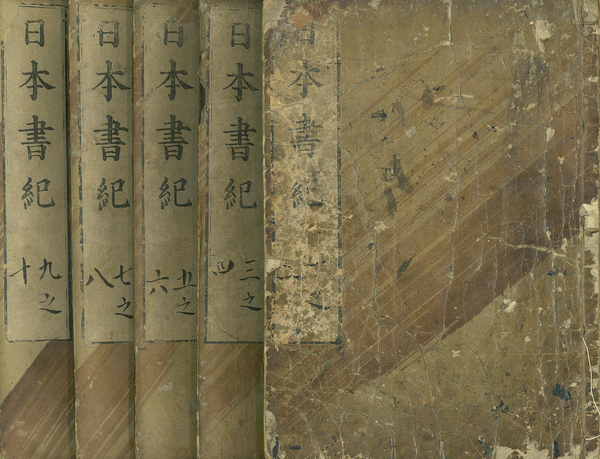 日本書紀
之
日本書紀
三之
四
日本書紀
五之
六
日本書紀
七之
八
日本書紀
九之
十